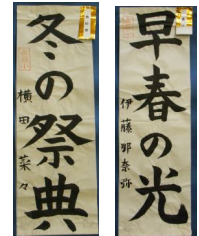 冬の祭典
横田菜々
早春の光
伊藤那奈弥